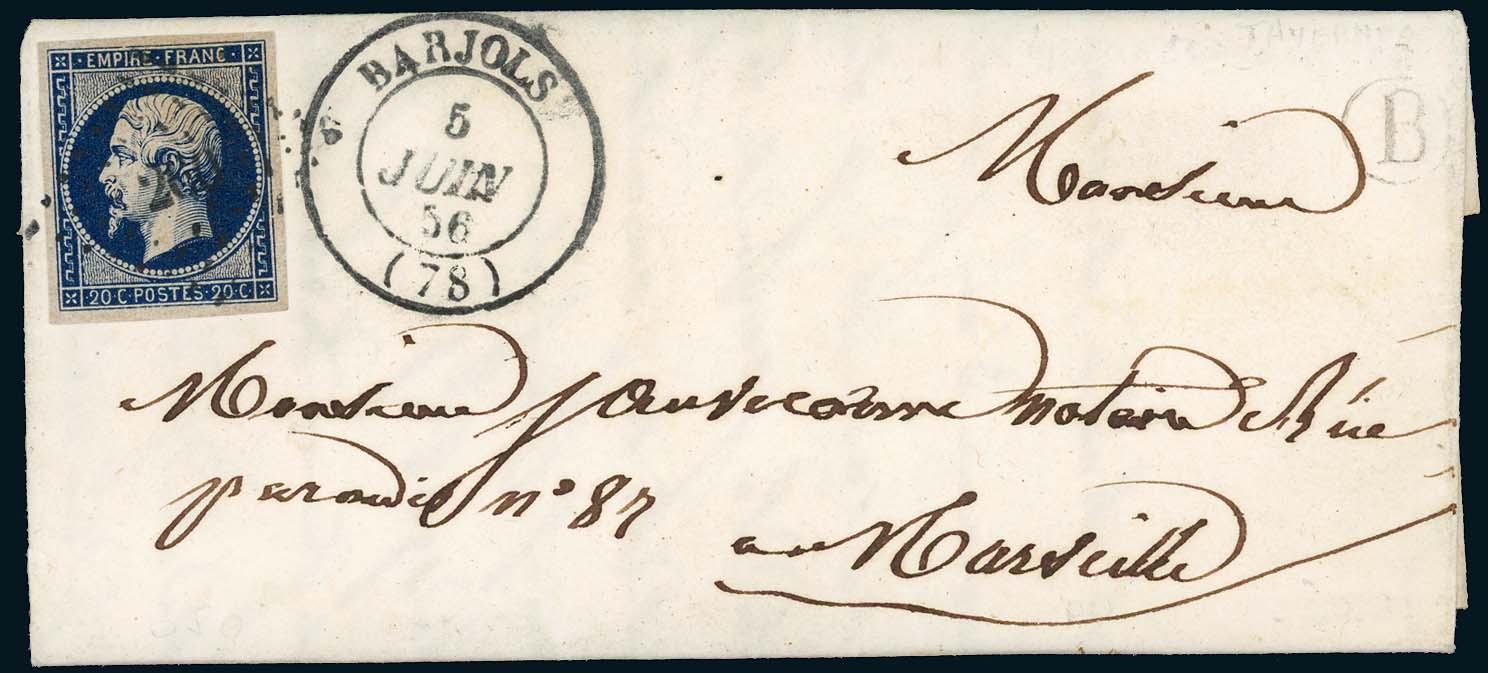 EMPIRE FRANC
20·C·POSTES·20·C
BARJOLS
5
JUIN
56
(78)
B
Monsieur
Monsieur notaire Rue
paradis n° 87
a Marseille